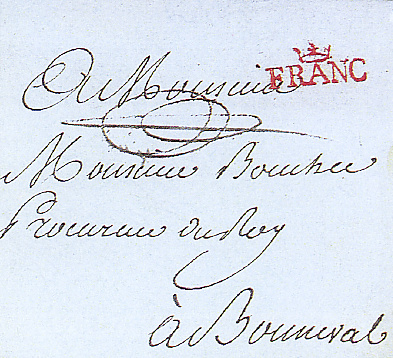 FRANC
A Monsieur
Monsieur Boucher
Procureur du Roy
à Bonneval